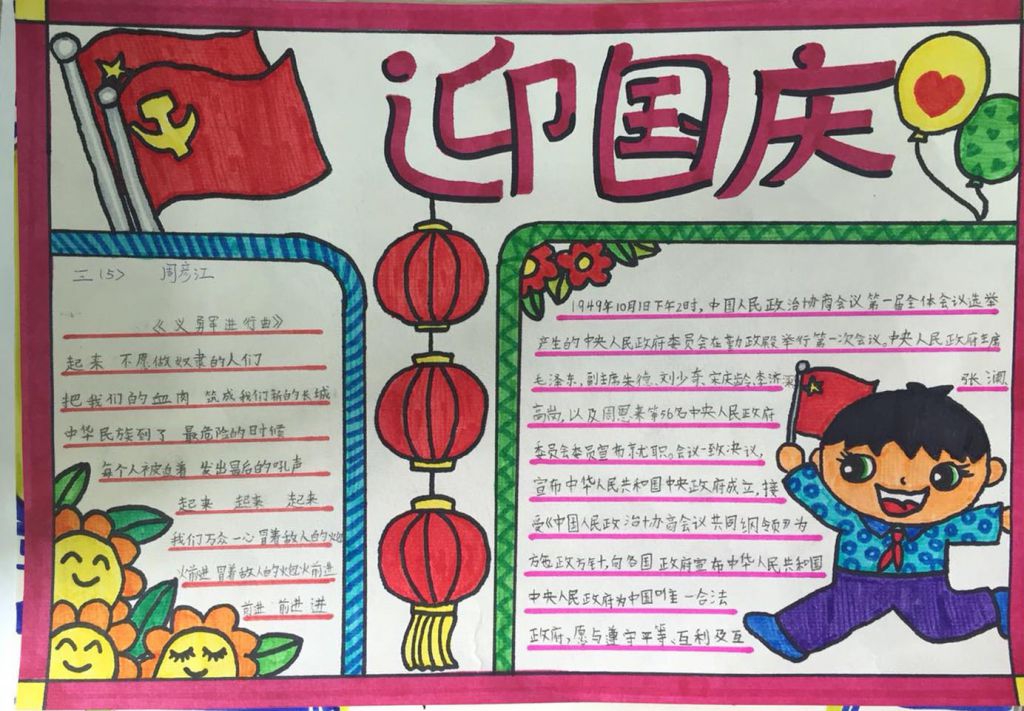 迎国庆
三(5) 周彦江
《义勇军进行曲》
起来 不愿做奴隶的人们
把我们的血肉 筑成我们新的长城
中华民族到了 最危险的时候
每个人被迫着 发出最后的吼声
起来 起来 起来
我们万众一心 冒着敌人的炮
火前进 冒着敌人的炮火前进
前进 前进 进
1949年10月1日下午2时,中国人民政治协商会议第一届全体会议选举
产生的中央人民政府委员会在勤政殿举行第一次会议。中央人民政府主席
毛泽东,副主席朱德、刘少奇、宋庆龄、李济深 张澜
高岗,以及周恩来等56名中央人民政府
委员会委员宣布就职。会议一致决议,
宣布中华人民共和国中央政府成立,接
受《中国人民政治协商会议共同纲领》为
方施政方针,向各国政府宣布中华人民共和国
中央人民政府为中国唯一合法
政府,愿与遵守平等、互利及互